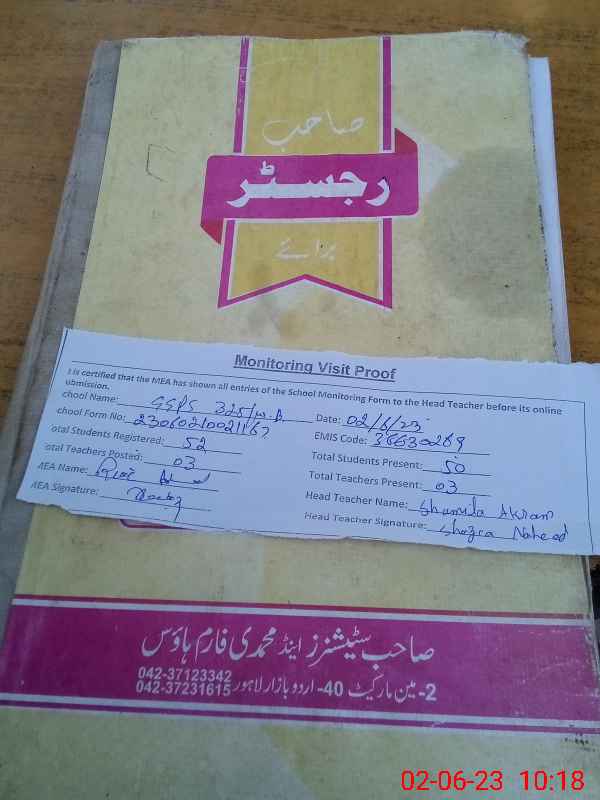 صاحب
رجسٹر
برائے
Monitoring Visit Proof
t is certified that the MEA has shown all entries of the School Monitoring Form to the Head Teacher before its online
ubmission.
chool Name: GGPS 325/W.B Date: 02/6/23
chool Form No: EMIS Code: 36630269
otal Students Registered: 52 Total Students Present: 50
otal Teachers Posted: 03 Total Teachers Present: 03
MEA Name: Head Teacher Name: Shumila Akram
MEA Signature: Head Teacher Signature: Shazra Naheed
صاحب سٹیشنرز اینڈ محمدی فارم ہاؤس
042-37123342
2- مین مارکیٹ 40- اردو بازار لاہور 042-37231615
02-06-23 10:18